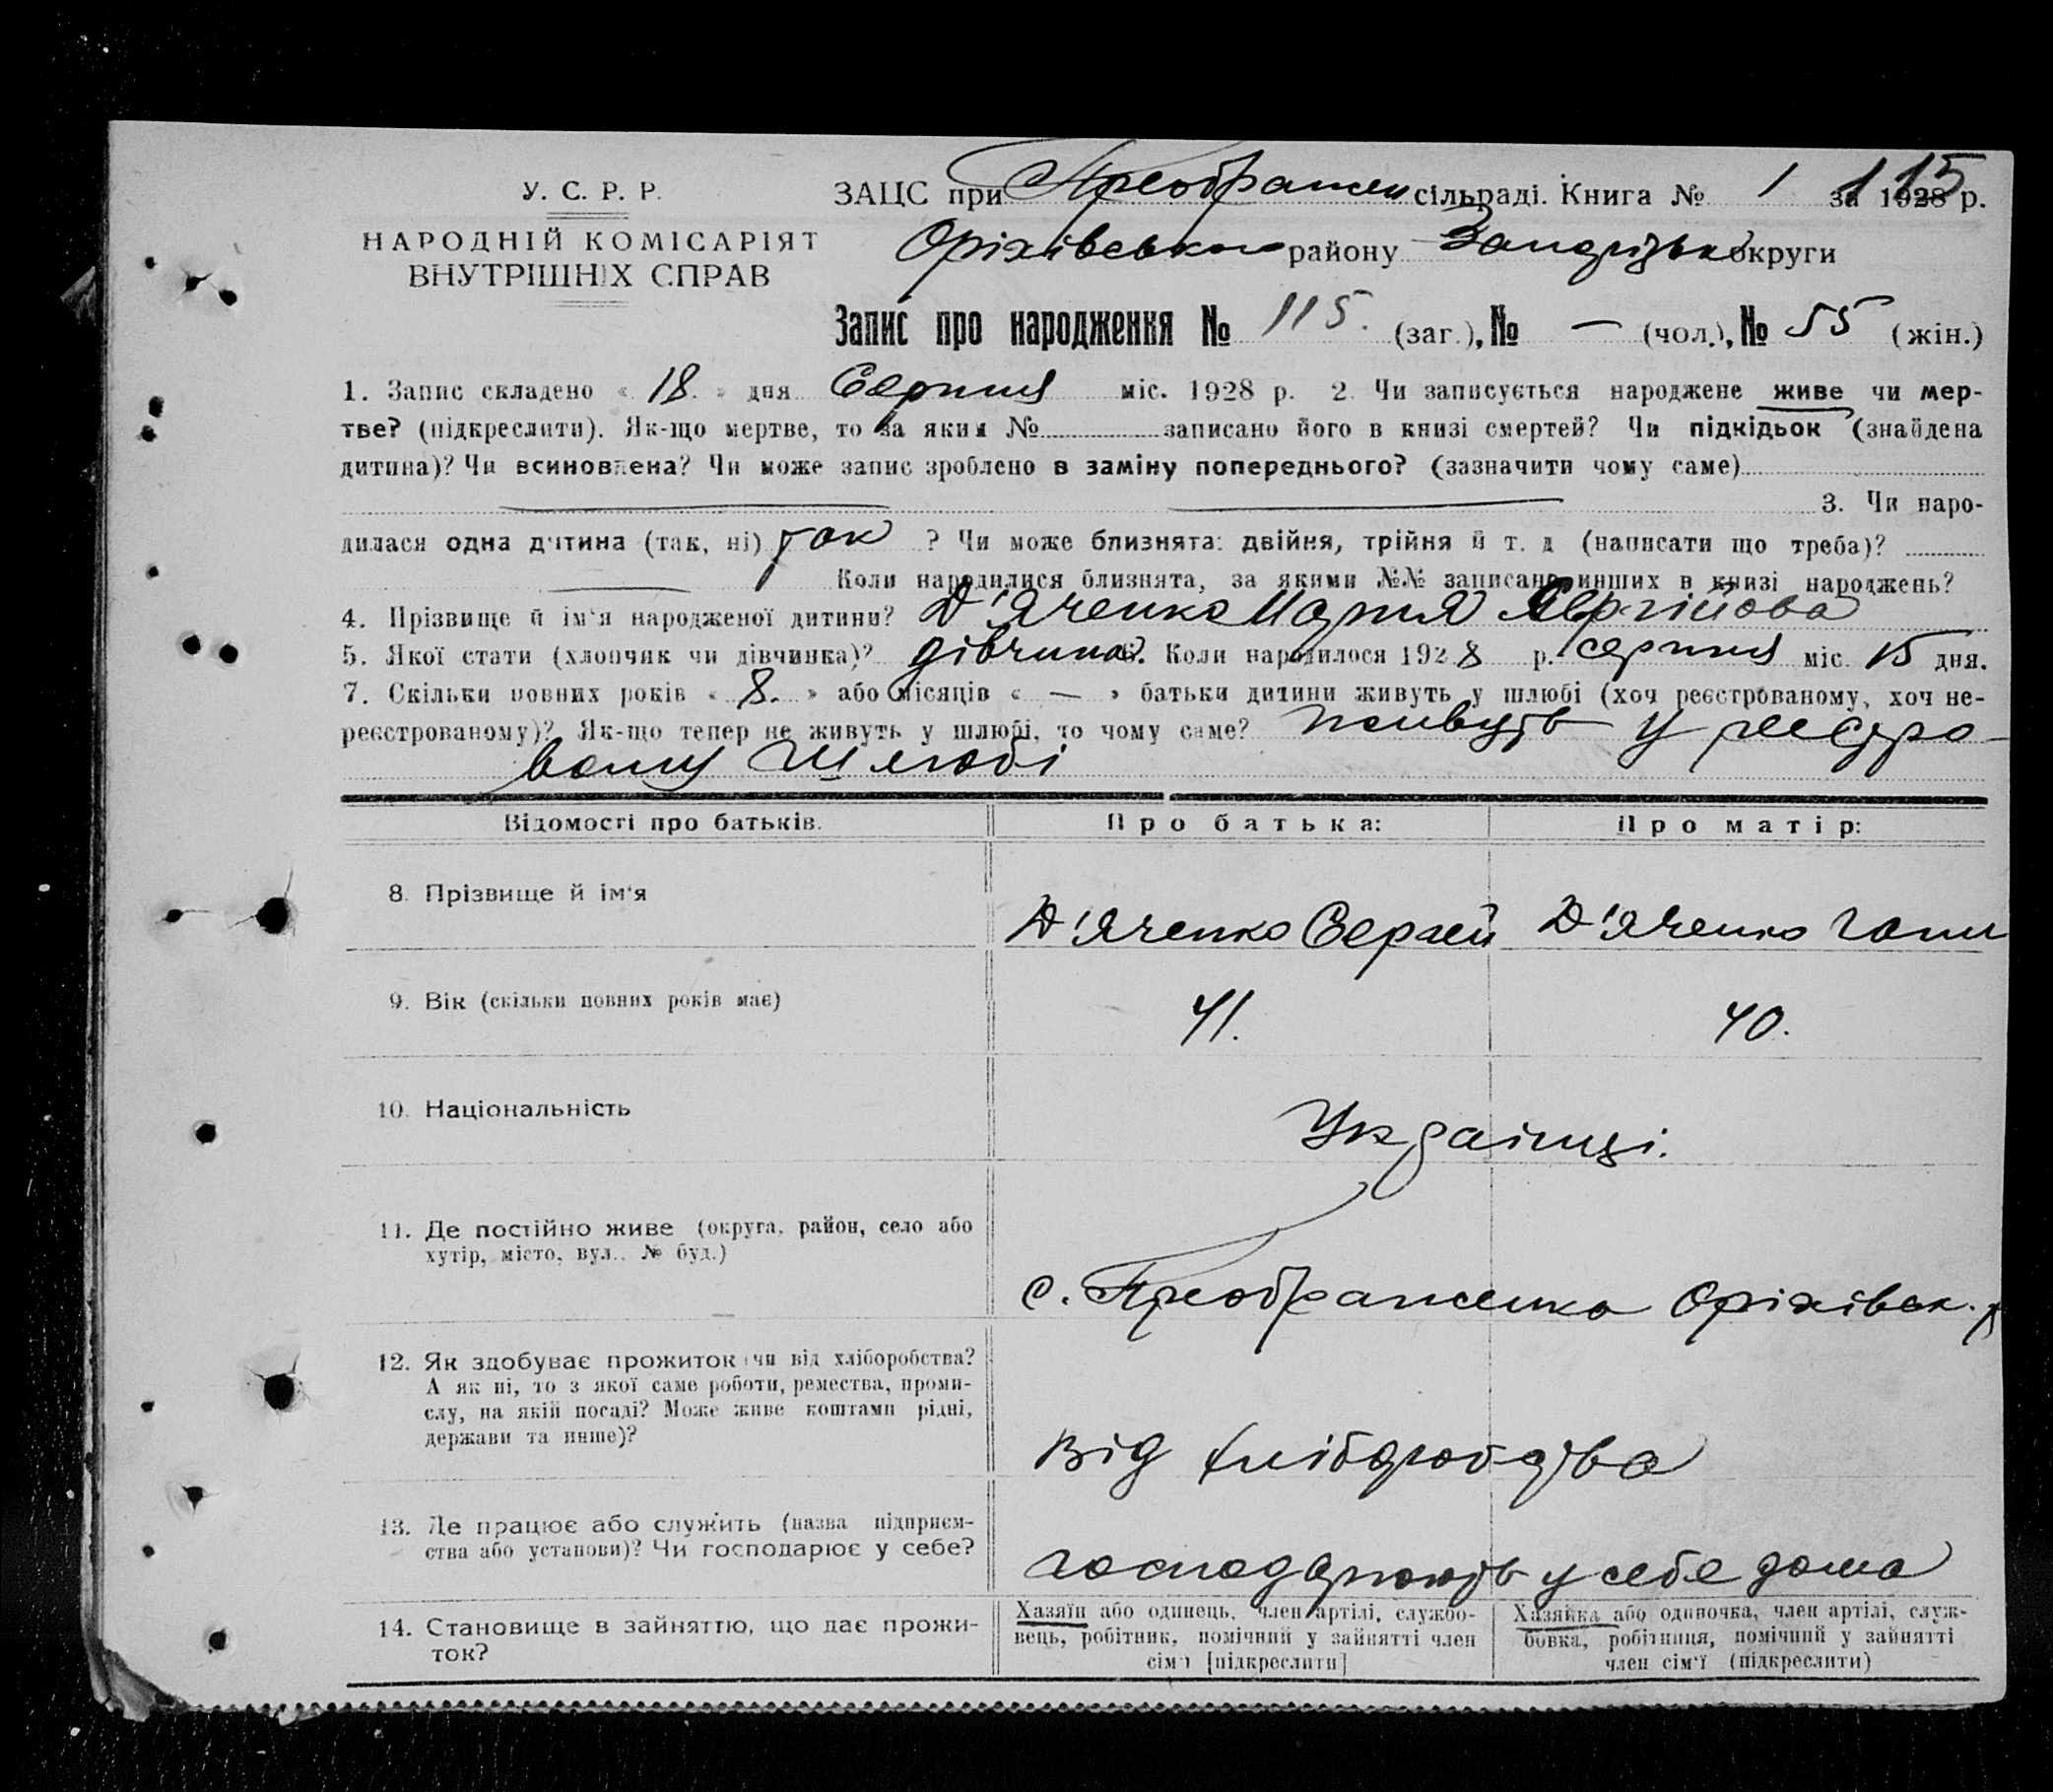 115
У. С. Р. Р.
ЗАЦС при Преображен сільраді. Книга № 1 за 1928 р.
НАРОДНІЙ КОМІСАРІЯТ
ВНУТРІШНІХ СПРАВ
Оріхівського району Запорізько округи
Запис про народження № 115. (заг.), № — (чол.), № 55 (жін.)
1. Запис складено « 18. » дня Серпня міс. 1928 р. 2. Чи записується народжене живе чи мер-
тве? (підкреслити). Як-що мертве, то за яким № записано його в книзі смертей? Чи підкідьок (знайдена
дитина)? Чи всиновлена? Чи може запис зроблено в заміну попереднього? (зазначити чому саме)
3. Чи наро-
дилася одна дитина (так, ні) так ? Чи може близнята: двійня, трійня й т. д (написати що треба)?
Коли народилися близнята, за якими №№ записано инших в книзі народжень?
4. Прізвище й ім'я народженої дитини? Д'яченко Марія Сергійова
5. Якої статі (хлопчик чи дівчинка)? дівчина 6. Коли народилося 1928 р. серпня міс. 15 дня.
7. Скільки повних років « 8. » або місяців « — » батьки дитини живуть у шлюбі (хоч реєстрованому, хоч не-
реєстрованому)? Як-що тепер не живуть у шлюбі, то чому саме? живуть у реєстро-
ваному шлюбі
Відомості про батьків. Про батька: Про матір:
8. Прізвище й ім'я Д'яченко Сергей Д'яченко Ганн
9. Вік (скільки повних років має) 41. 40.
10. Національність Українці.
11. Де постійно живе (округа, район, село або
хутір, місто, вул., № буд.)
с. Преображенка Оріхівськ. р
12. Як здобуває прожиток чи від хліборобства?
А як ні, то з якої саме роботи, ремества, проми-
слу, на якій посаді? Може живе коштами рідні,
держави та инше)?
Від хліборобства
13. Де працює або служить (назва підприєм-
ства або установи)? Чи господарює у себе?
господарюють у себе дома
14. Становище в зайняттю, що дає прожи-
ток?
Хазяїн або одинець, член артілі, службо-
вець, робітник, помічний у зайнятті член
сім'ї [підкреслити]
Хазяйка або одиночка, член артілі, служ-
бовка, робітниця, помічний у зайнятті
член сім'ї (підкреслити)